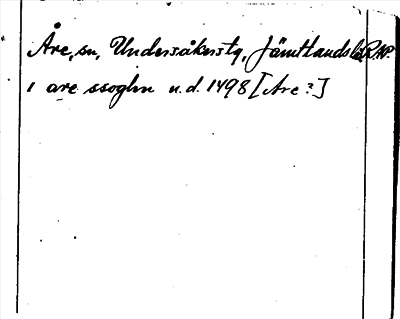 Åre, sn, Undersåkers tg, Jämtlands lä R.Ap.
i are ssoghn u.d. 1498 [Are?]